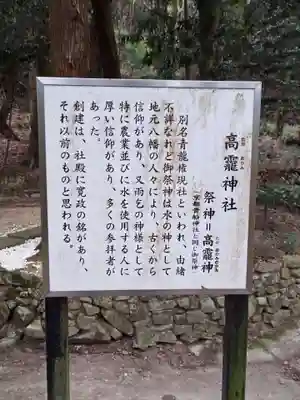 高龗神社
祭神＝高龗神
京都貴船神社と同じ御祭神
別名青龍権現社といわれ、由緒
不詳なれど御祭神は水の神として
地元八幡の人々により、古くから
信仰があり、又雨乞の神様として
特に農業並びに水を使用する人に
厚い信仰があり、多くの参拝者が
あった。
創建は、社殿に寛政の銘があり、
それ以前のものと思われる。